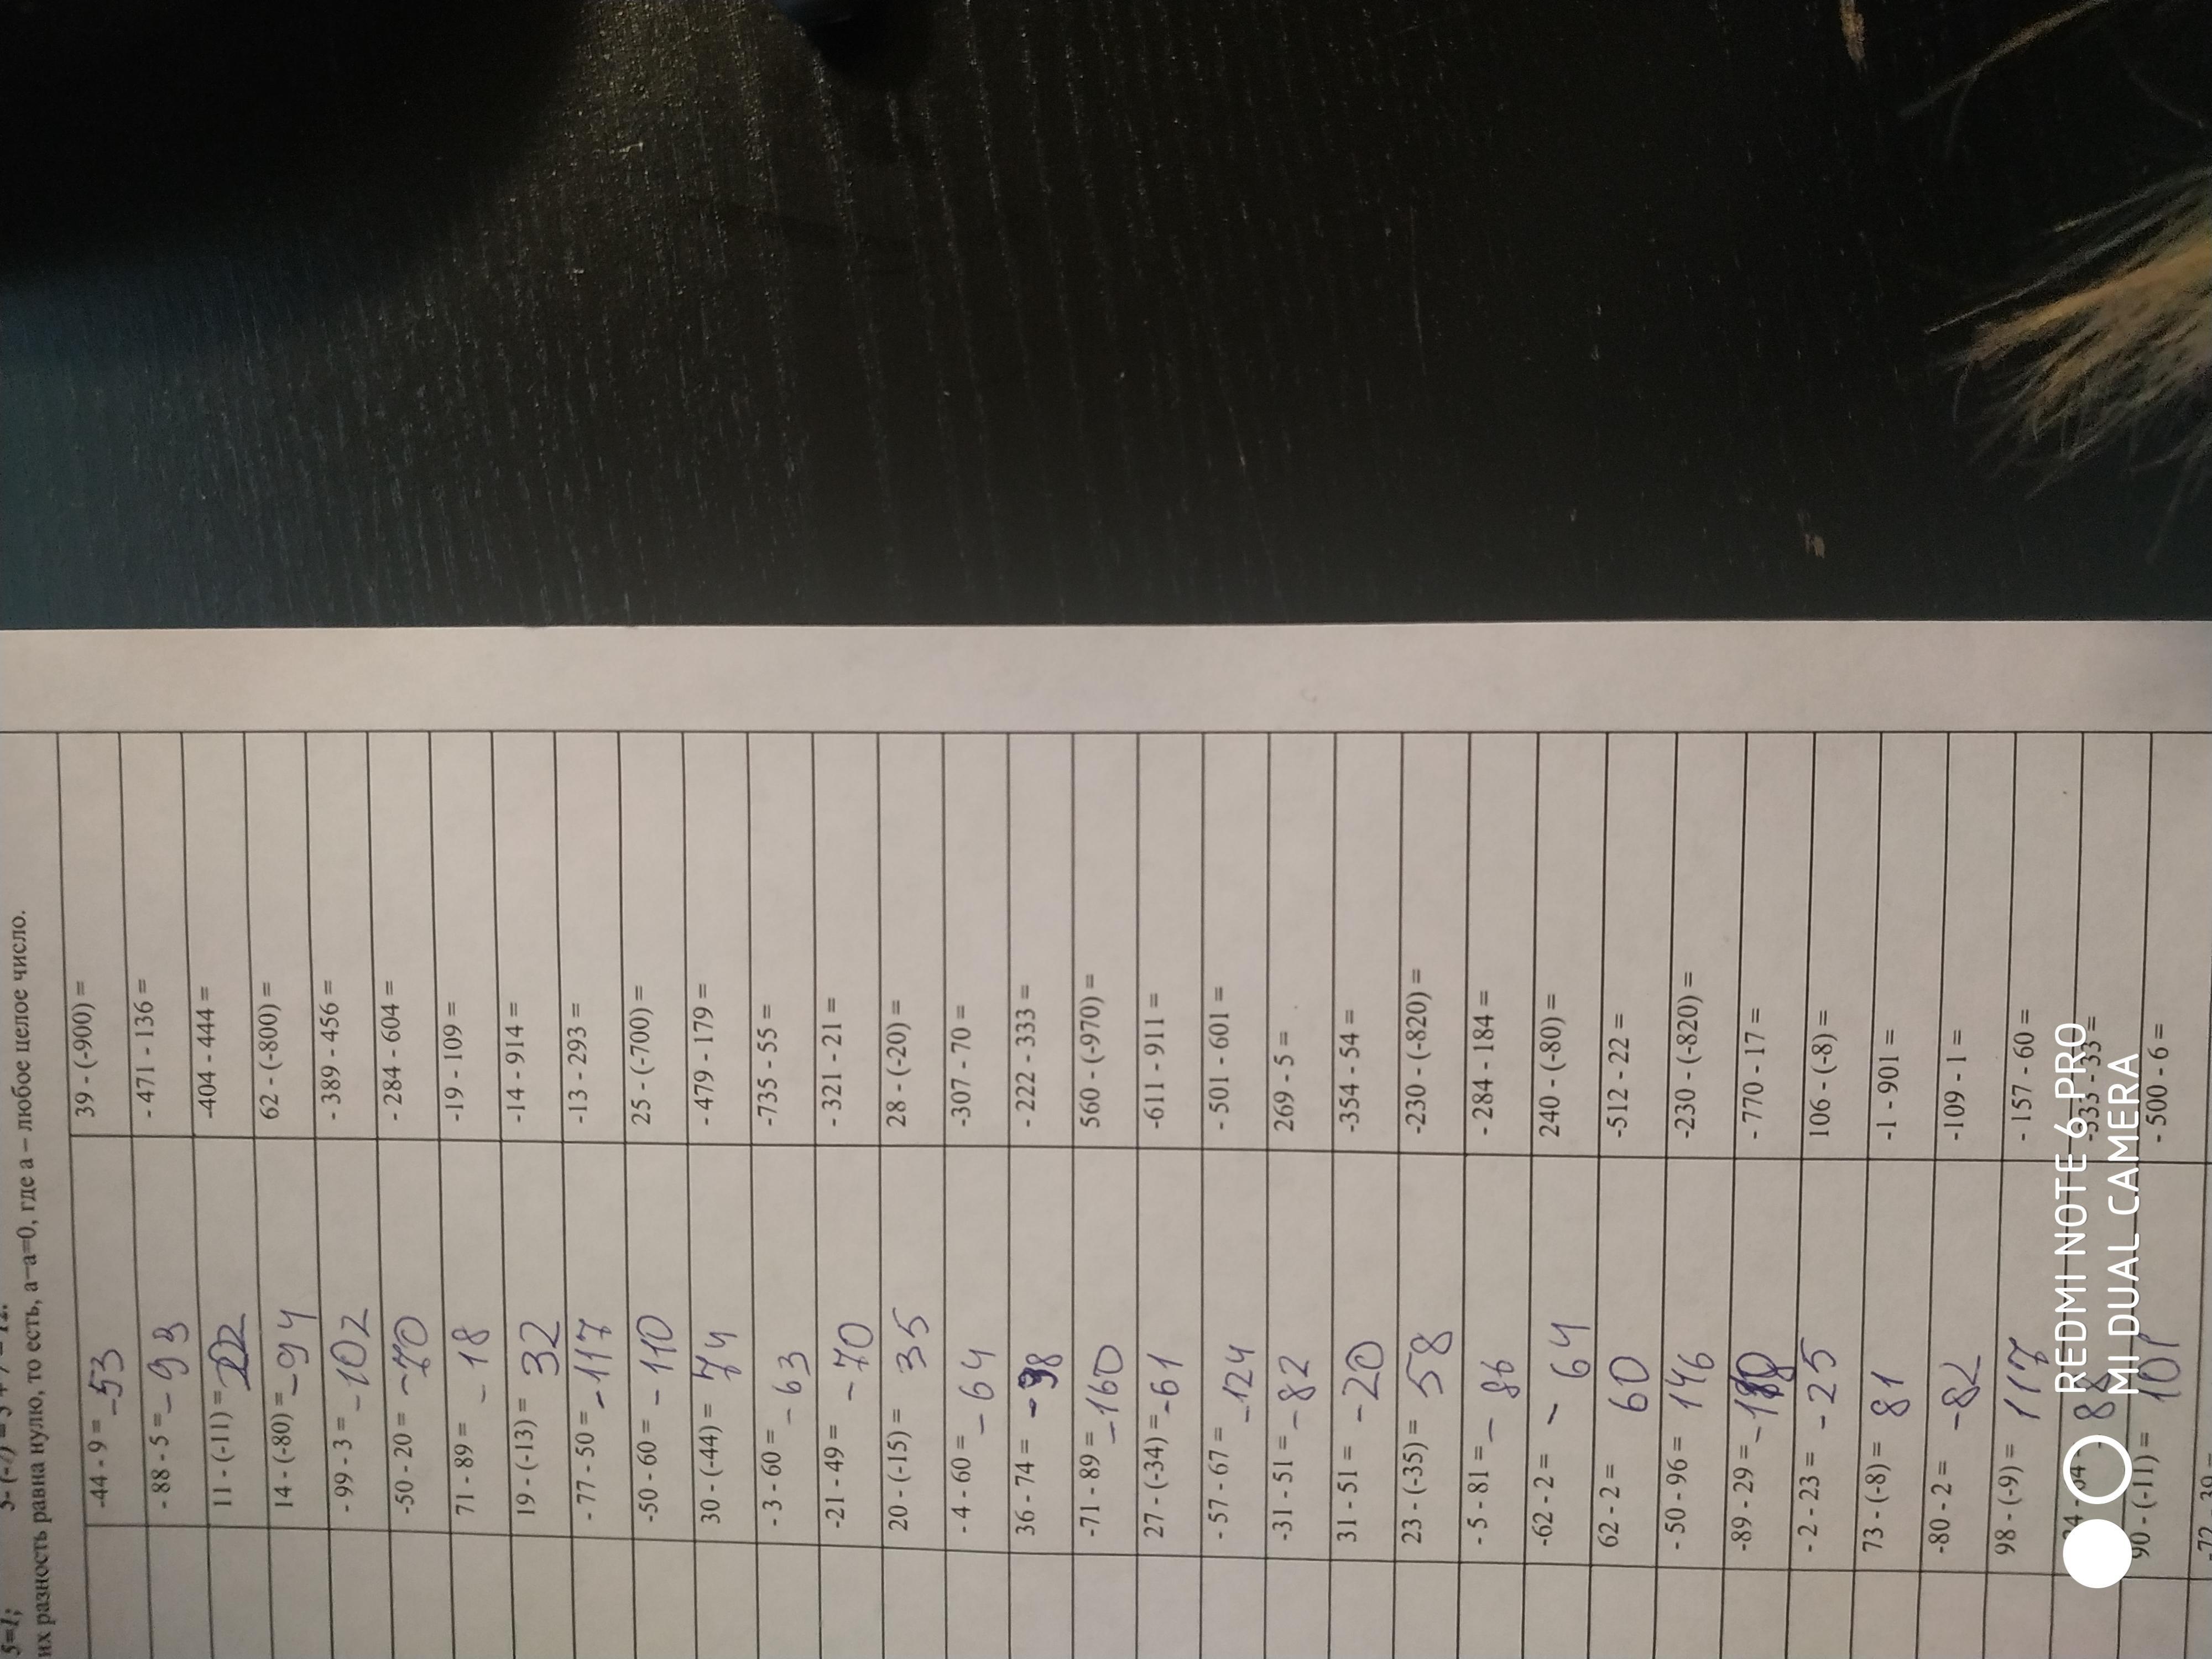 5=1; 5- (-7) = 5 + 7 = 12.
их разность равна нулю, то есть, a−a=0, где a – любое целое число.
-44 - 9 = -53 39 - (-900) =
- 88 - 5 = -93 - 471 - 136 =
11 - (-11) = 22 -404 - 444 =
14 - (-80) = -94 62 - (-800) =
- 99 - 3 = -102 - 389 - 456 =
-50 - 20 = -70 - 284 - 604 =
71 - 89 = -18 -19 - 109 =
19 - (-13) = 32 -14 - 914 =
- 77 - 50 = -117 -13 - 293 =
-50 - 60 = -110 25 - (-700) =
30 - (-44) = 74 - 479 - 179 =
- 3 - 60 = -63 -735 - 55 =
-21 - 49 = -70 - 321 - 21 =
20 - (-15) = 35 28 - (-20) =
- 4 - 60 = -64 -307 - 70 =
36 - 74 = -38 - 222 - 333 =
-71 - 89 = -160 560 - (-970) =
27 - (-34) = -61 -611 - 911 =
- 57 - 67 = -124 - 501 - 601 =
-31 - 51 = -82 269 - 5 =
31 - 51 = -20 -354 - 54 =
23 - (-35) = 58 -230 - (-820) =
- 5 - 81 = -86 - 284 - 184 =
-62 - 2 = - 64 240 - (-80) =
62 - 2 = 60 -512 - 22 =
- 50 - 96 = 146 -230 - (-820) =
-89 - 29 = - - 770 - 17 =
- 2 - 23 = -25 106 - (-8) =
73 - (-8) = 81 -1 - 901 =
-80 - 2 = -82 -109 - 1 =
98 - (-9) = 117 - 157 - 60 =
-333 - 33 =
90 - (-11) = 101 - 500 - 6 =
-72 - 39 =
REDMI NOTE 6 PRO
MI DUAL CAMERA